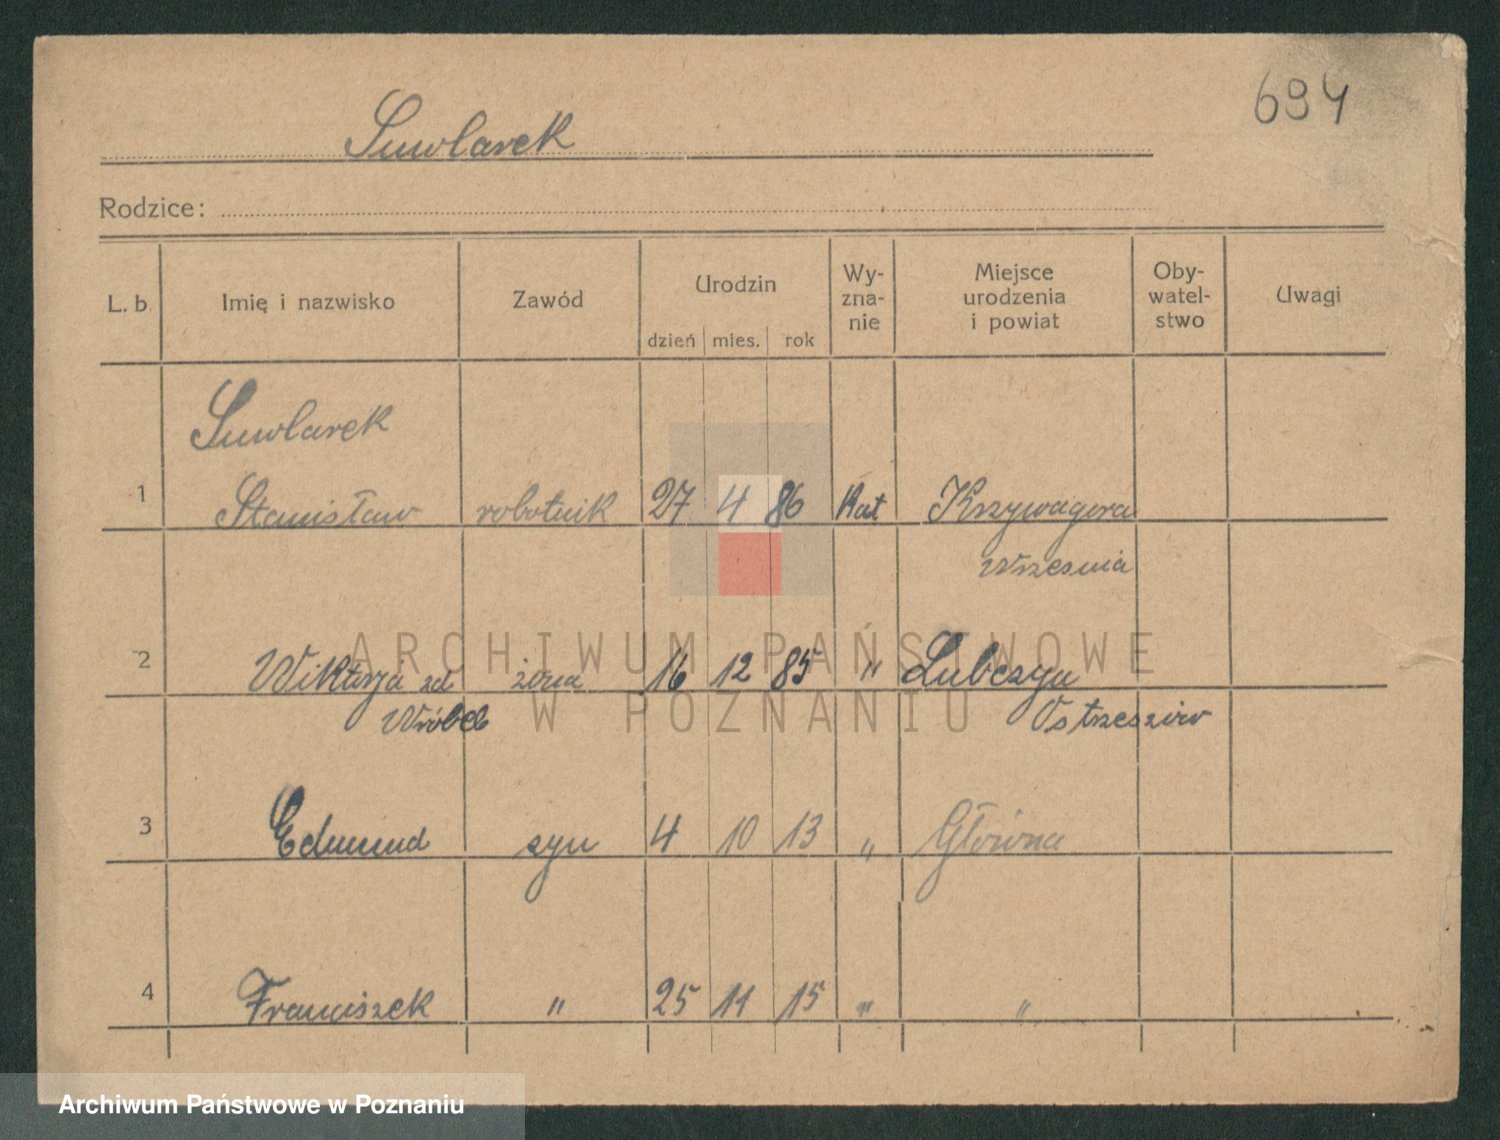 694
Suwlarek
Rodzice:
L. b. Imię i nazwisko Zawód Urodzin dzień mies. rok Wy-zna-nie Miejsce urodzenia i powiat Oby-watel-stwo Uwagi
Suwlarek
1 Stanisław robotnik 27 4 86 Kat Krzywagóra
Wrzesnia
2 Wiktorja zd żona 16 12 85 " Lubczyn
Wróbel Ostrzeszów
3 Edmund syn 4 10 13 " Główna
4 Franciszek " 25 11 15 " "
ARCHIWUM PAŃSTWOWE
W POZNANIU
Archiwum Państwowe w Poznaniu